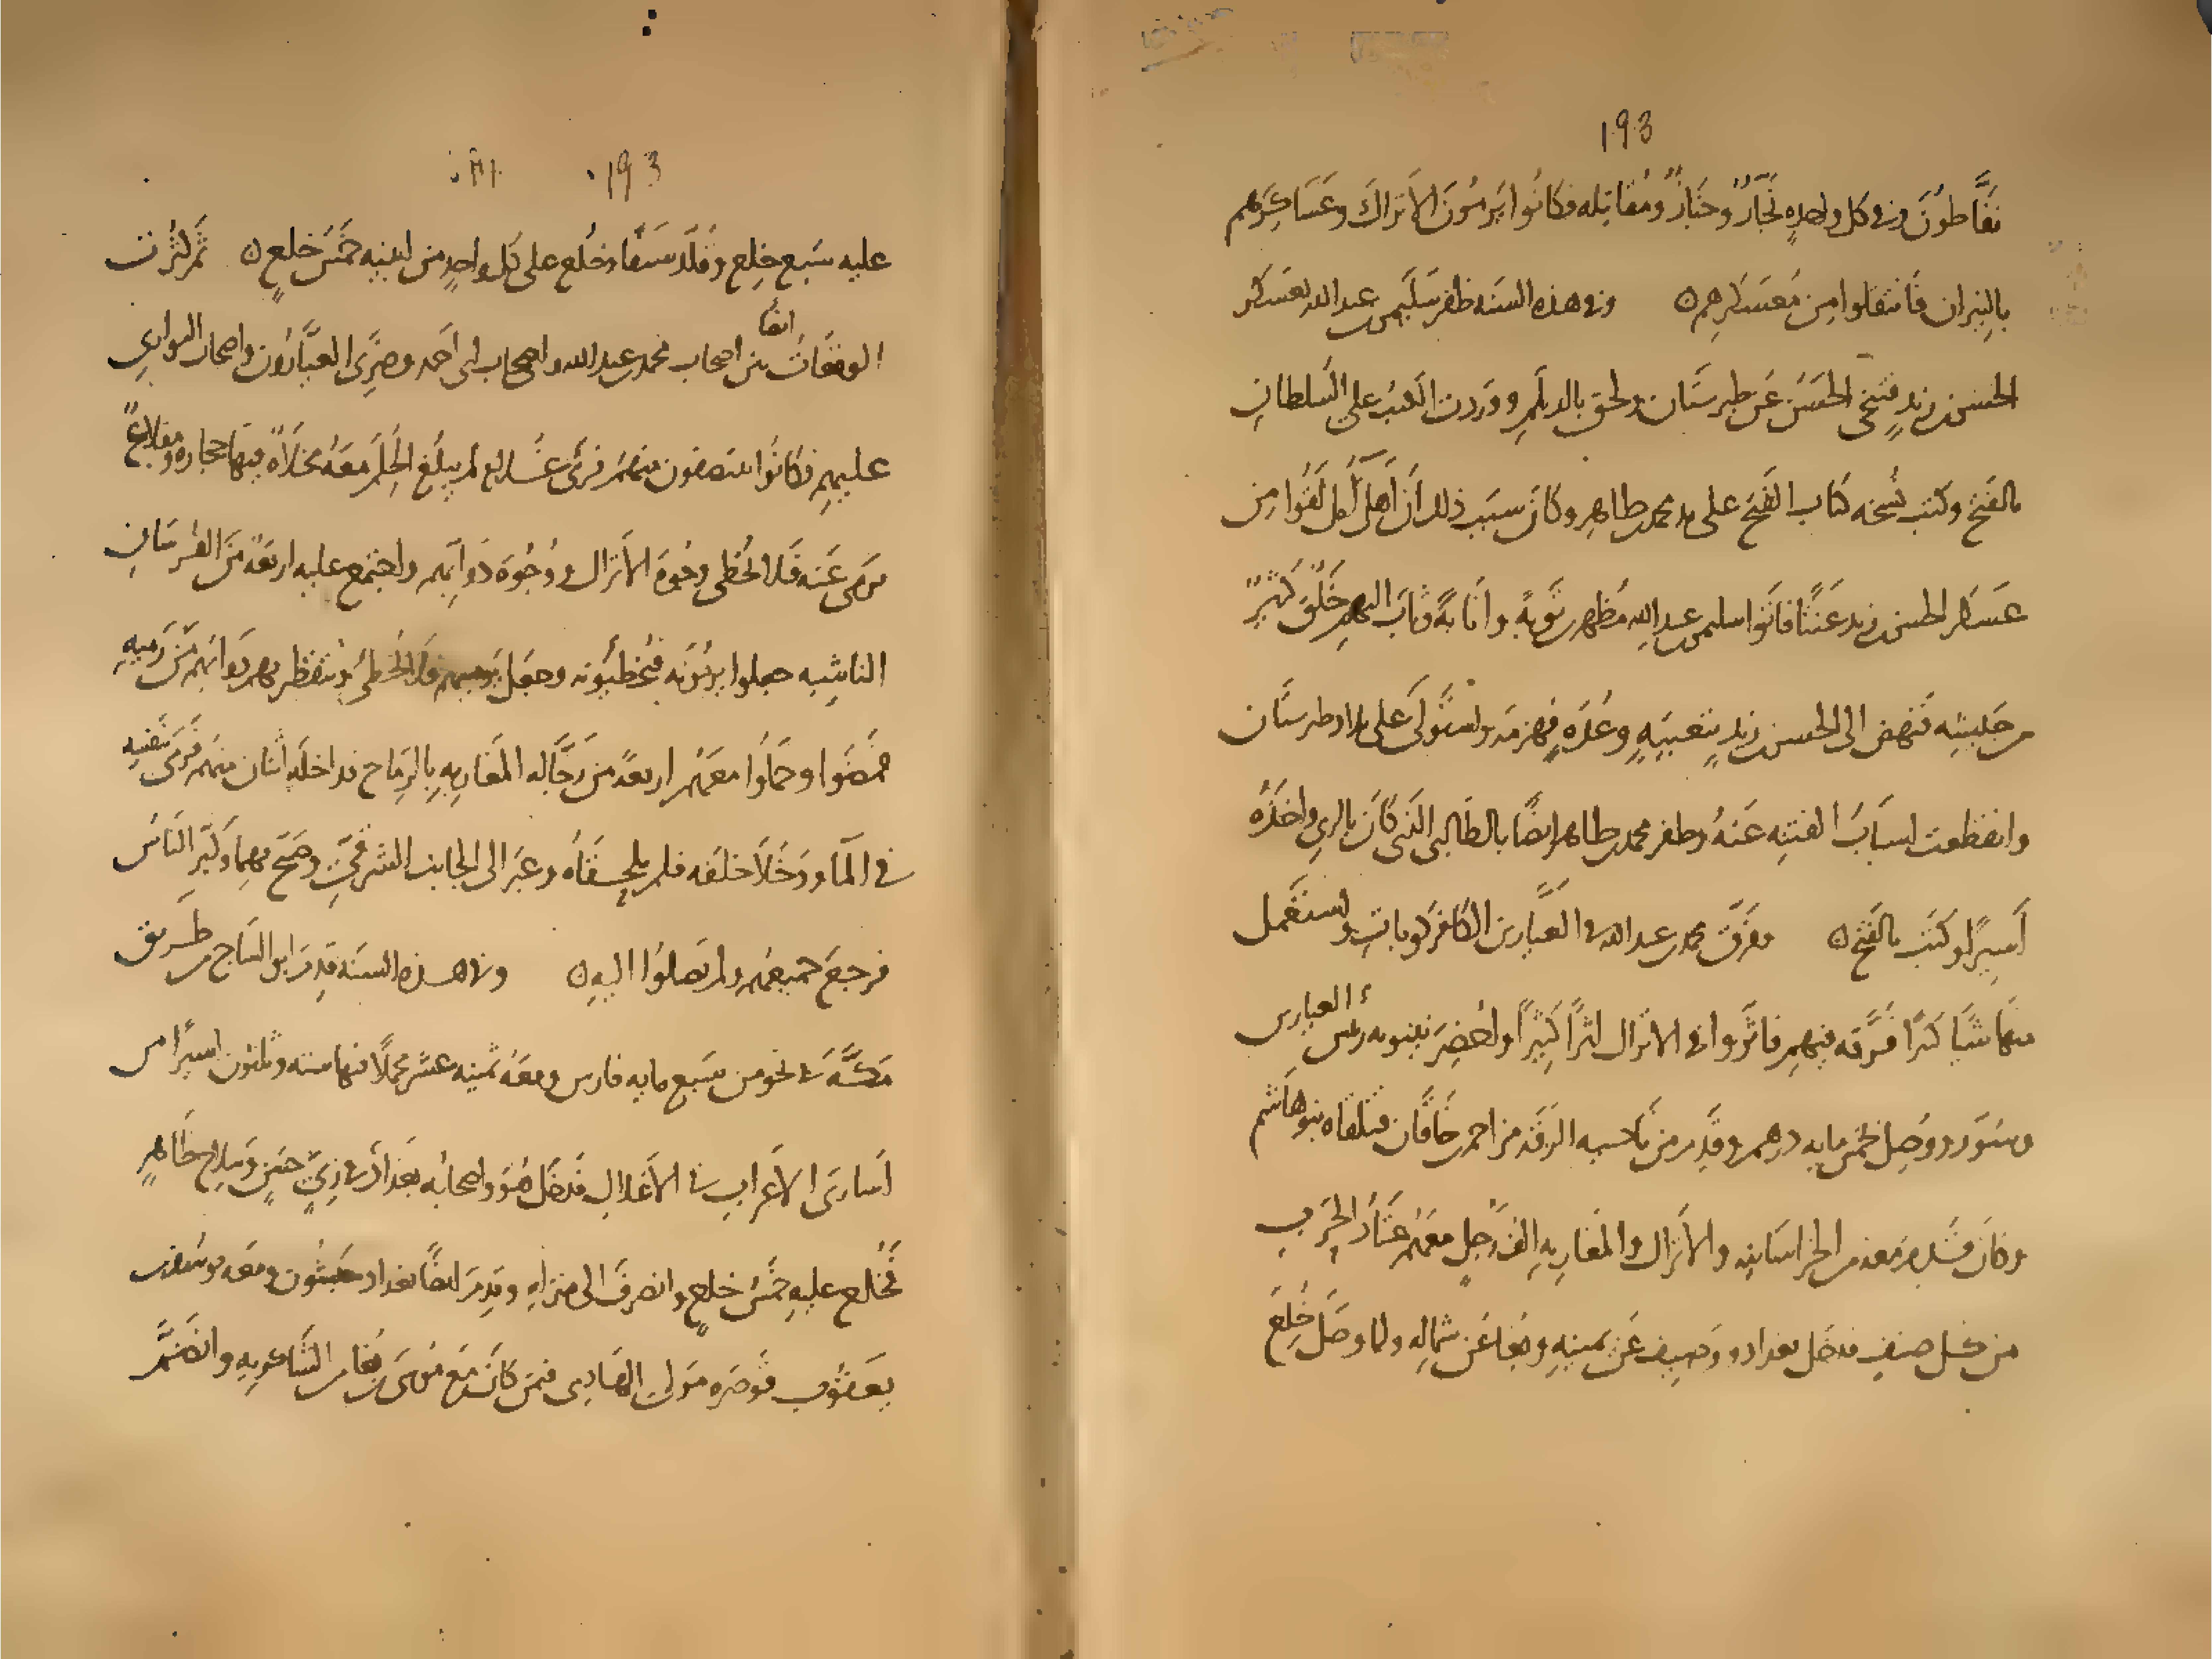 193
نَفَّاطُونَ وفى كل واحدةٍ نَجّارٌ وخبّازٌ ومُقاتِله فكانُوا يَرمُونَ الأتراكَ وعَسَاكِرَهم
بالنِيران فَانتقلوا مِن مُعَسكرهِم ٥ وفى هذه السنه ظفر سُلَيمن بن عبد الله بعَسكر
الحسن بن زيدٍ فتنحى الحَسَنُ عَن طبرستَان ولحق بالديلَمِ ووَردت الكتبُ على السُلطانِ
بالفَتح وكتب نُسخه كتاب الفتح على يد محمد بن طاهرٍ وكانَ سبَب ذلك أنّ أهل آمل لَقُوا مِن
عَسَكر الحسن بن زيد عَنَتًا فاتوا سليمن بن عبد الله مُظهرين تَوبَةً وانَابَةً وثابَ اليهم خَلقٌ كَثيرٌ
من خليته فنَهض الى الحسن بن زيدٍ بتعبيَهٍ وعُدّهٍ فهزمَه واستَولَى على بلاد طبرستَان
وانقطعت اسبَابُ الفتنِه عَنهُ وظفر محمد بن طاهر ايضًا بالطَالبى الذى كان بالرى واخذَهُ
أسيرًا وكتب بالفَتح ٥ وفرَّق محمد بن عبد الله فى العيّارين الكافركوبات واستعمل
منها شيًا كثيرًا فَرَّقه فيهم فاثّروا فى الاتراك اثرًا كَثيرًا واحضِرَ نينويه رئيسُ العيارين
وسُوّر ووُصِل بخمس مايه درهم وقَدِم من ناحيه الرقَّه مزاحم بن خاقَان فتلقاه بنو هاشم
وكان قَدِم معه من الخراسَانيه والاتراك والمغاربه الف رَجلٍ معَهُم عتَادُ الحَرب
من كل صنفٍ فدخل بغداد ووَصِيف عَن يمينِه وبُغا عَن شمالِه ولما وصَل خُلِعَ
193
عليه سَبع خِلع وقُلّد سَيفًا وخُلع على كلّ واحدٍ من ابنيه خمسَ خلعٍ ٥ ثم كثُرت
الوقعَاتُ ايضًا بين اصحاب محمد بن عبد الله واصحاب ابى احمد وضرِّى العيَّارُون واصحاب البوارى
عليهم فكانُوا ينتصفون منهم فرُئى غلام لم يبلُغ الحُلم معَهُ مخلاةٌ فيها حجاره ومقلاعٌ
يرمى عَنه فلا يُخطى وجوهَ الاتراك ووُجُوهَ دَوابِّهم واجتمع عليه اربعَهٌ من الفُرسَانِ
الناشِبه جعلوا يرمُونَه فيُخطِئونه وجَعل يَرميهم فلا يُخطئ وتقَطّر بهم دَوابهم مِن رَميِه
فَمضَوا وجاوُا معَهُم اربعهً من رجّاله المغاربهِ بالرِماح فداخلَه اثنان منهم فرَمَى بنَفسِه
فى المآء ودَخَلَا خلفَه فلم يلحقَاه وعبَر الى الجانب الشرقىّ وصَيَّح بهما وكبّر النَاسُ
فرجعَ جميعُهم ولم يَصلُوا اليهِ ٥ وفى هذه السنَه قدِمَ ابو السَاج من طريق
مكّه فى نحو من سَبع مايه فارس ومعَهُ ثمنيه عشَر محملًا فيها سته وثلثون اسيرًا من
اسَارَى الاعرَابِ فى الأغلال فدَخَل هُو واصحَابه بغدَادَ فى زىٍّ حَسَنٍ وسِلاح ظاهرٍ
فخُلع عليهِ خمسُ خلعٍ وانصرفَ الى منزله وقدِمَ ايضًا بغداد حبشون ومعَه يوسُف بن
يَعقُوب قَوصَره مَولى الهادى فيمن كانَ مَع مُوسَى بن بُغا من الشَاكريّهِ وانضَمَّ